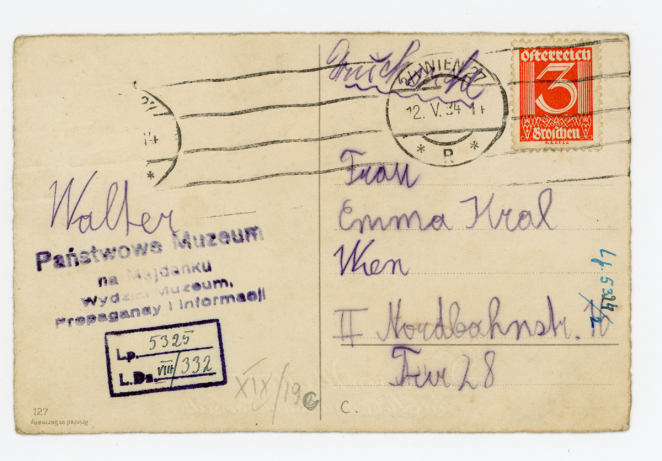 Drucksache
Österreich
3
Groschen
WIEN 27
12. V. 34
* R *
Walter
Państwowe Muzeum
na Majdanku
Wydział Muzeum,
Propagandy i Informacji
Lp. 5325
L.Dz. VIII/332
XIX/19
Frau
Emma Kral
Wien
II Nordbahnstr.
Tür 28
Lp. 5324
C.
127
Printed in Germany